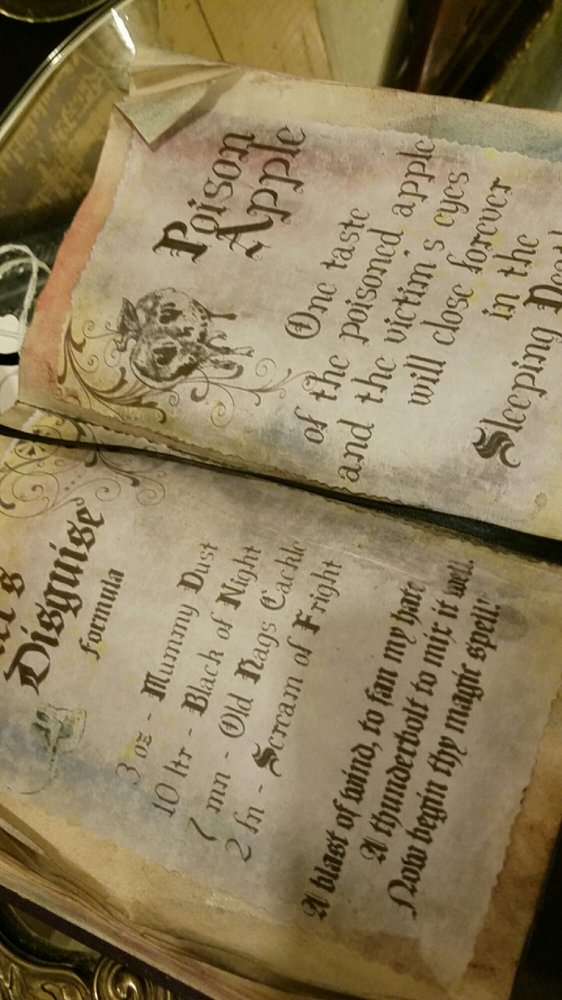 Disguise
formula
3 oz - Mummy Dust
10 ltr - Black of Night
7 mn - Old Nags Cackle
2 fn - Scream of Fright
A blast of wind, to fan my hate
A thunderbolt to mix it well.
Now begin thy magic spell!'
Poison
Apple
One taste
of the poisoned apple
and the victim's eyes
will close forever
in the
Sleeping